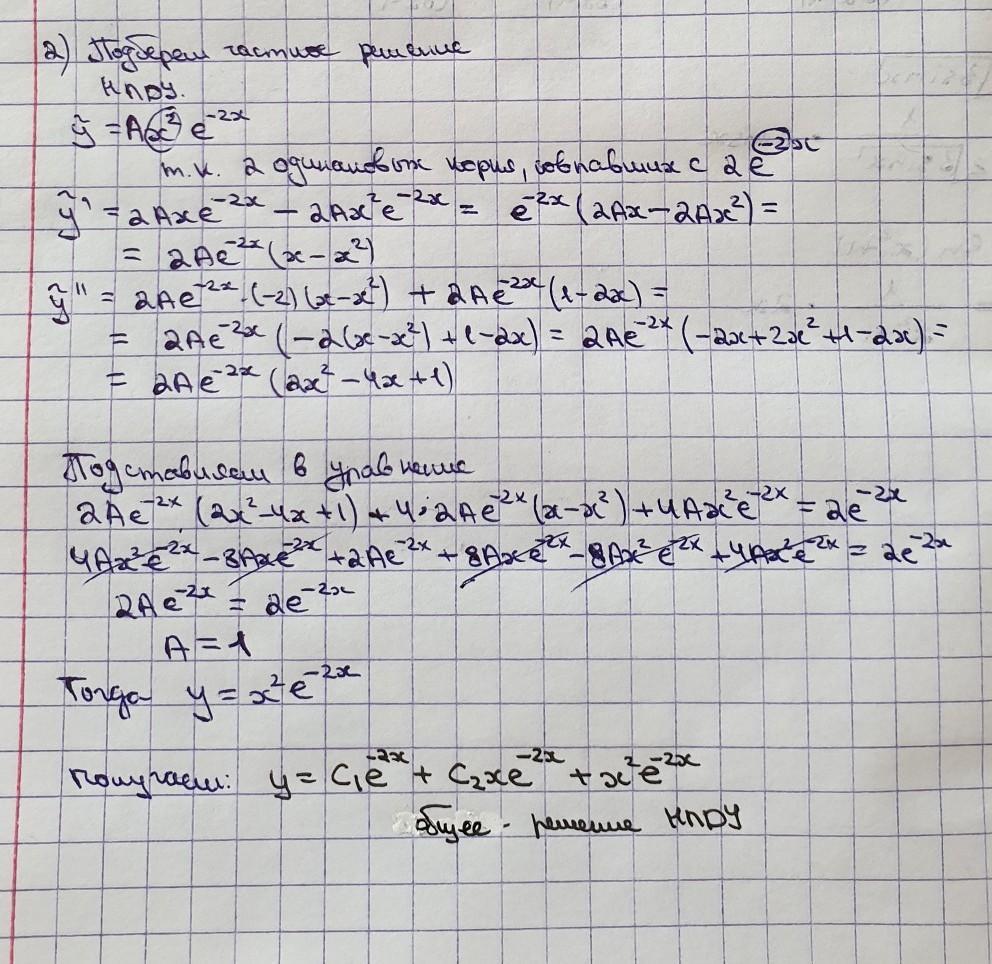 2) Подберем частное решение
НПДУ.
ỹ = Ax² e^{-2x}
т.к. 2 одинаковых корня, совпавших с 2e^{-2x}
ỹ' = 2Axe^{-2x} - 2Ax²e^{-2x} = e^{-2x}(2Ax - 2Ax²) =
= 2Ae^{-2x}(x - x²)
ỹ'' = 2Ae^{-2x}·(-2)(x - x²) + 2Ae^{-2x}(1 - 2x) =
= 2Ae^{-2x}(-2(x - x²) + 1 - 2x) = 2Ae^{-2x}(-2x + 2x² + 1 - 2x) =
= 2Ae^{-2x}(2x² - 4x + 1)
Подставляем в уравнение
2Ae^{-2x}·(2x² - 4x + 1) + 4·2Ae^{-2x}(x - x²) + 4Ax²e^{-2x} = 2e^{-2x}
4Ax²e^{-2x} - 8Axe^{-2x} + 2Ae^{-2x} + 8Axe^{-2x} - 8Ax²e^{-2x} + 4Ax²e^{-2x} = 2e^{-2x}
2Ae^{-2x} = 2e^{-2x}
A = 1
Тогда y = x²e^{-2x}
Получаем: y = C₁e^{-2x} + C₂xe^{-2x} + x²e^{-2x}
общее - решение НПДУ